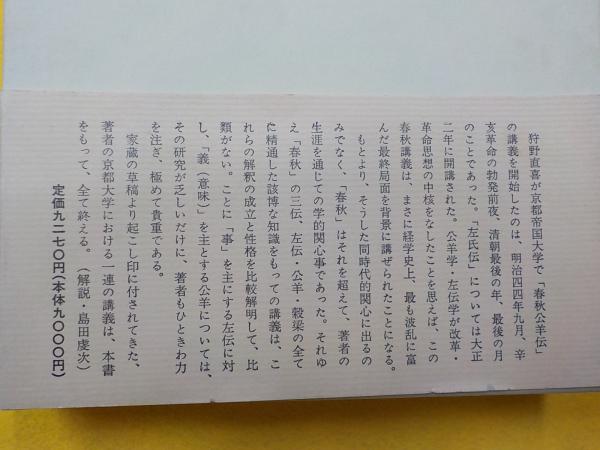 狩野直喜が京都帝国大学で「春秋公羊伝」
の講義を開始したのは、明治四四年九月、辛
亥革命の勃発前夜、清朝最後の年、最後の月
のことであった。「左氏伝」については大正
二年に開講された。公羊学・左伝学が改革・
革命思想の中核をなしたことを思えば、この
春秋講義は、まさに経学史上、最も波乱に富
んだ最終局面を背景に講ぜられたことになる。
もとより、そうした同時代的関心に出るの
みでなく、「春秋」はそれを超えて、著者の
生涯を通じての学的関心事であった。それゆ
え「春秋」の三伝、左伝・公羊・穀梁の全て
に精通した該博な知識をもっての講義は、こ
れらの解釈の成立と性格を比較解明して、比
類がない。ことに「事」を主にする左伝に対
し、「義（意味）」を主とする公羊については、
その研究が乏しいだけに、著者もひときわ力
を注ぎ、極めて貴重である。
家蔵の草稿より起こし印に付されてきた、
著者の京都大学における一連の講義は、本書
をもって、全て終える。（解説・島田虔次）
定価九二七〇円（本体九〇〇〇円）